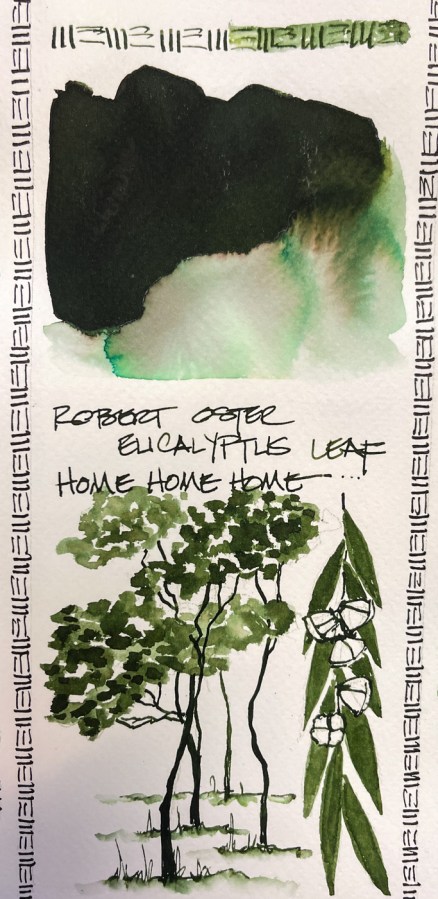 ROBERT OSTER
EUCALYPTUS LEAF
HOME HOME HOME ...